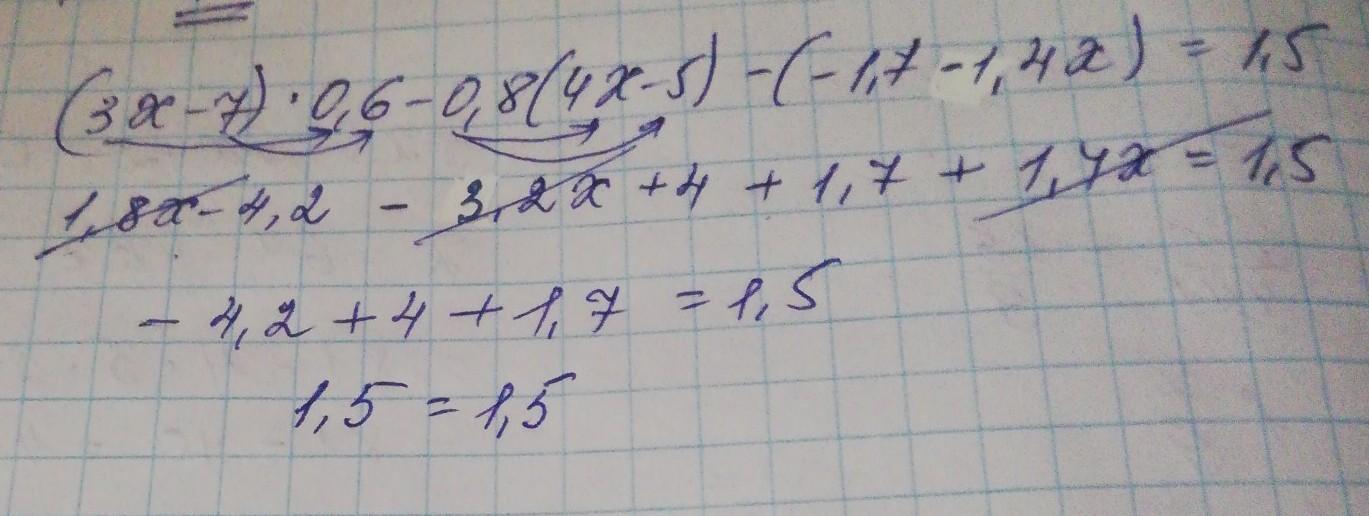 (3x-7)·0,6-0,8(4x-5)-(-1,7-1,4x)=1,5
1,8x-4,2-3,2x+4+1,7+1,4x=1,5
-4,2+4+1,7=1,5
1,5=1,5